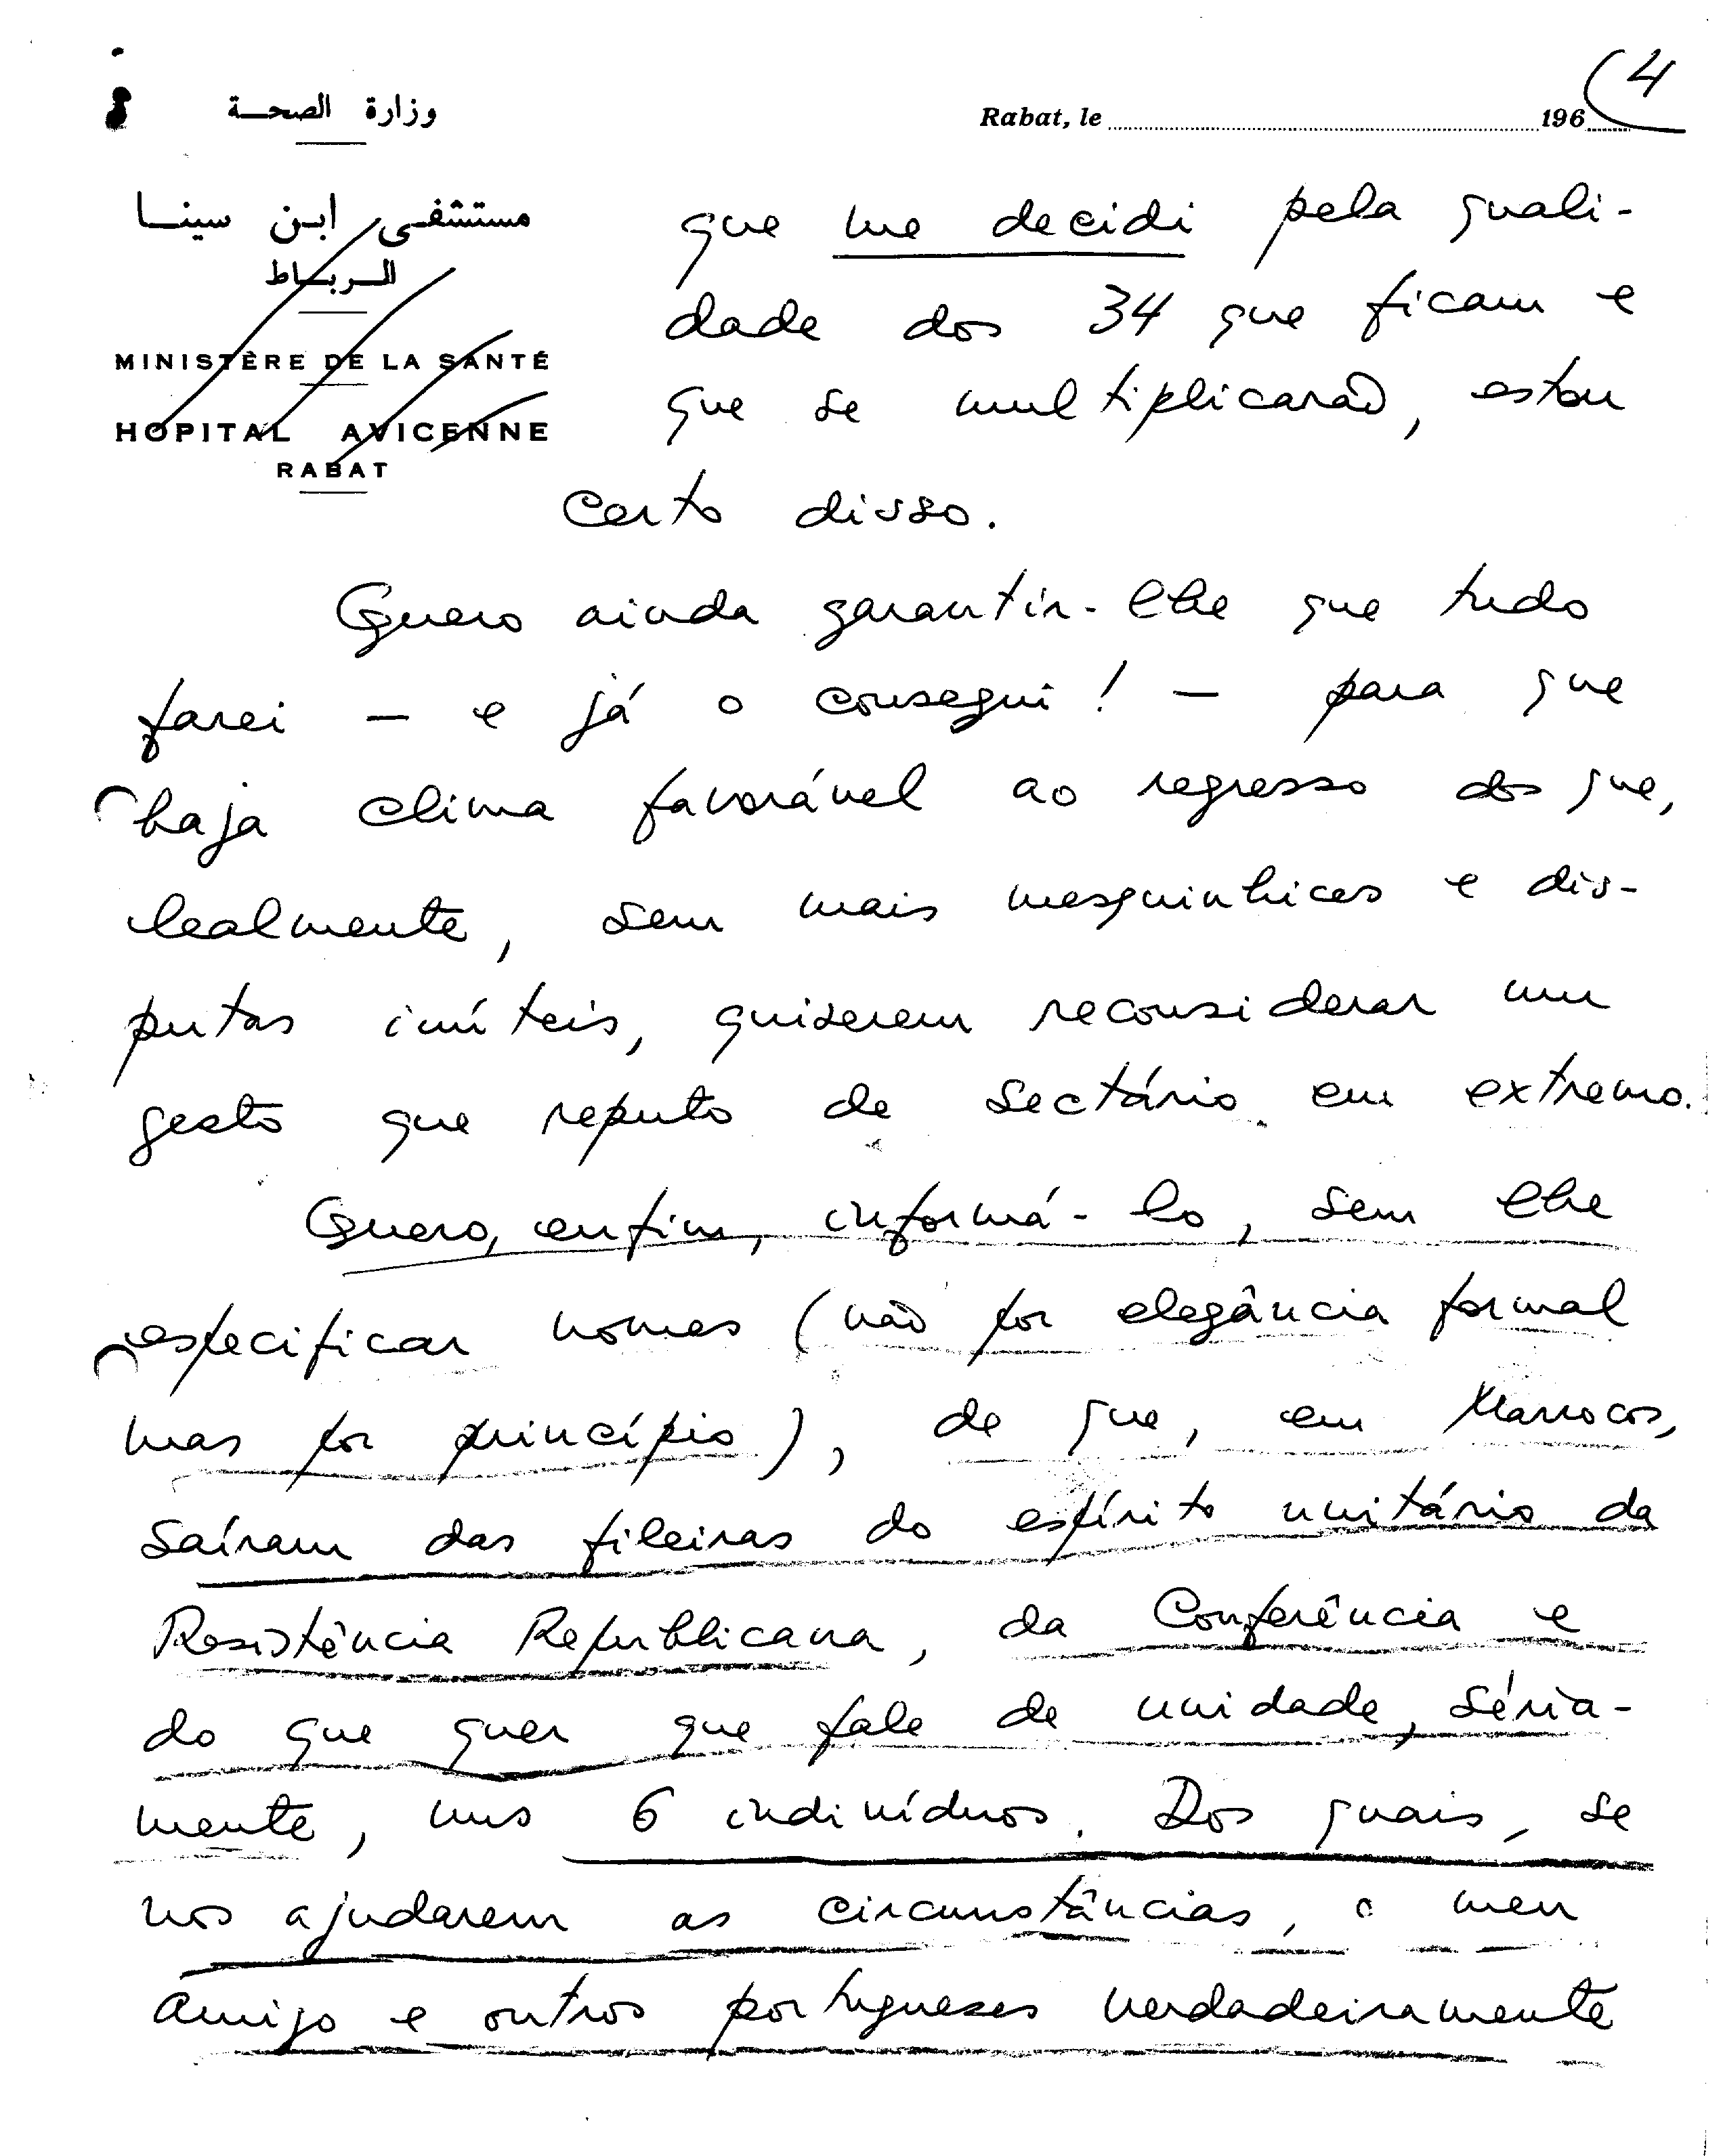 4
وزارة الصحة
Rabat, le 196
مستشفى ابن سينا
الرباط
MINISTÈRE DE LA SANTÉ
HOPITAL AVICENNE
RABAT
que me decidi pela quali-
dade dos 34 que ficam e
que se multiplicarão, estou
certo disso.
Quero ainda garantir-lhe que tudo
farei — e já o consegui! — para que
haja clima favorável ao regresso dos que,
lealmente, sem mais mesquinhices e dis-
putas inúteis, quiserem reconsiderar um
gesto que reputo de sectário em extremo.
Quero, enfim, informá-lo, sem lhe
especificar nomes (não por elegância formal
mas por princípio), de que, em Marrocos,
saíram das fileiras do espírito unitário da
Resistência Republicana, da Conferência e
do que quer que fale de unidade, séria-
mente, uns 6 indivíduos. Dos quais, se
nos ajudarem as circunstâncias, o meu
amigo e outros portugueses verdadeiramente